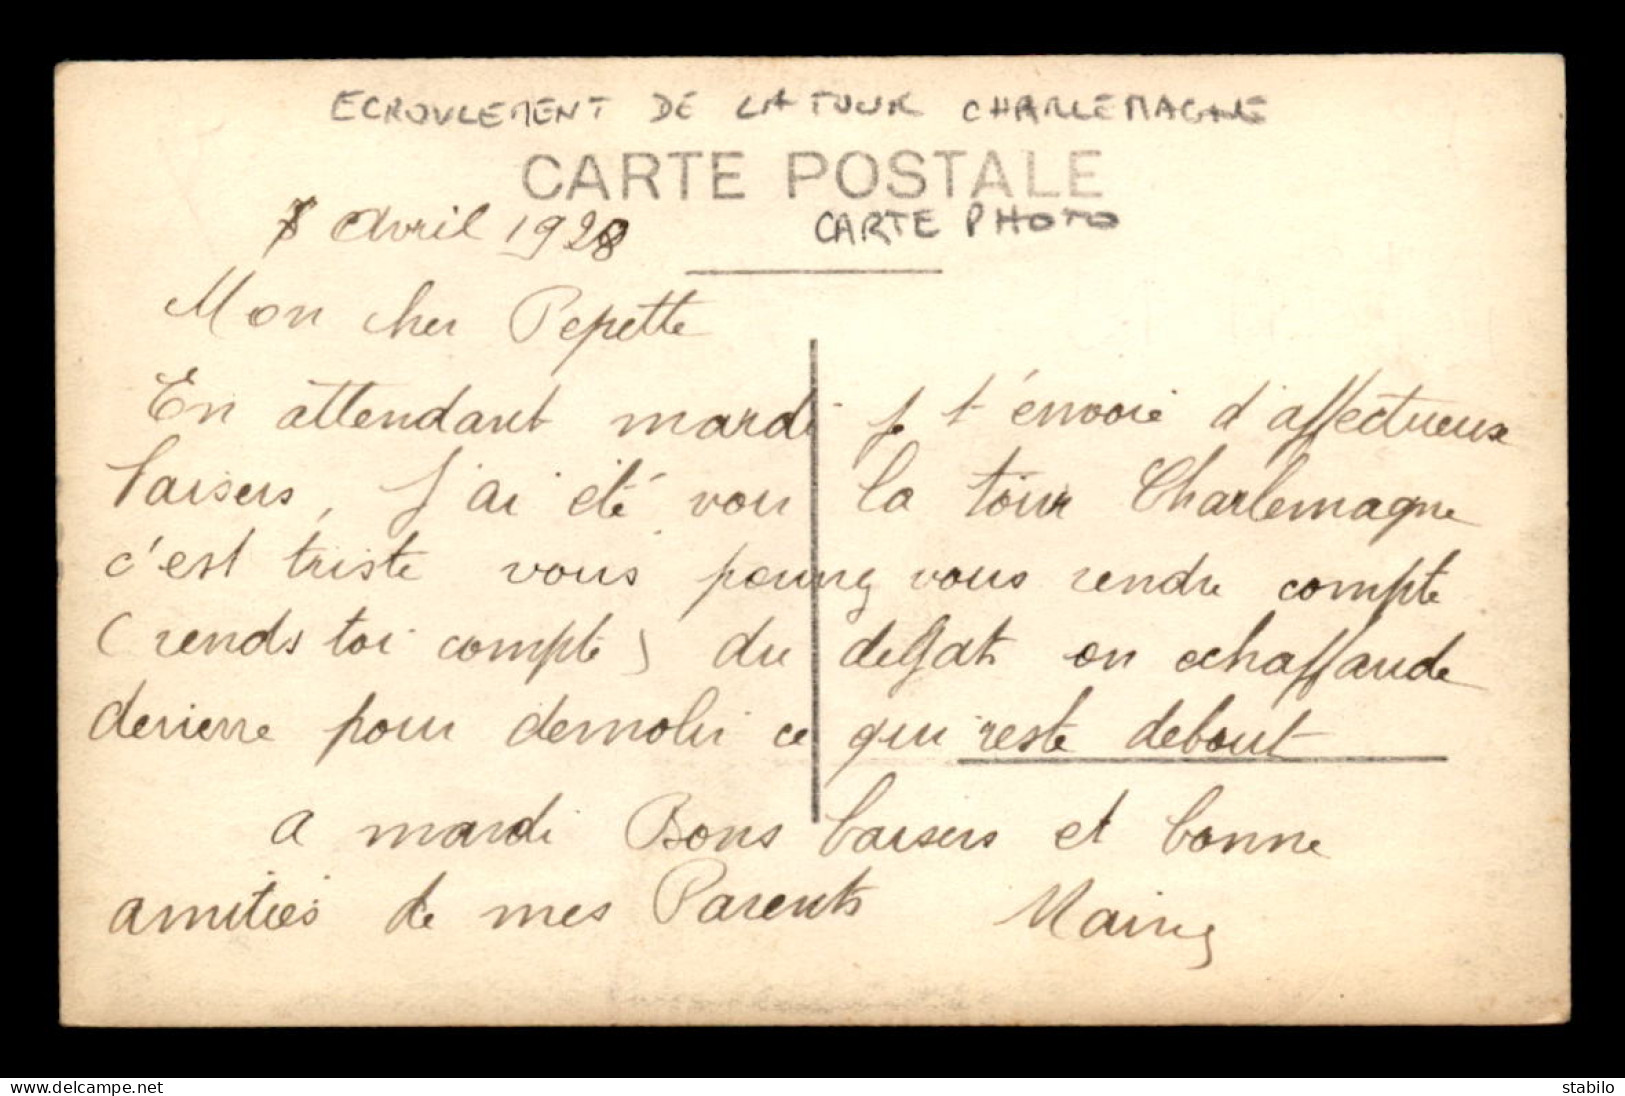 ECROULEMENT DE LA TOUR CHARLEMAGNE
CARTE POSTALE
8 Avril 1928
CARTE PHOTO
Mon cher Pepette
En attendant mardi je t'envoie d'affectueux
baisers, J'ai été voir la tour Charlemagne
c'est triste vous pourrez vous rendre compte
(rends toi compte) du degats on echaffaude
derierre pour demolir ce qui reste debout
a mardi Bons baisers et bonne
amitiés de mes Parents
delcampe.net
stabilo